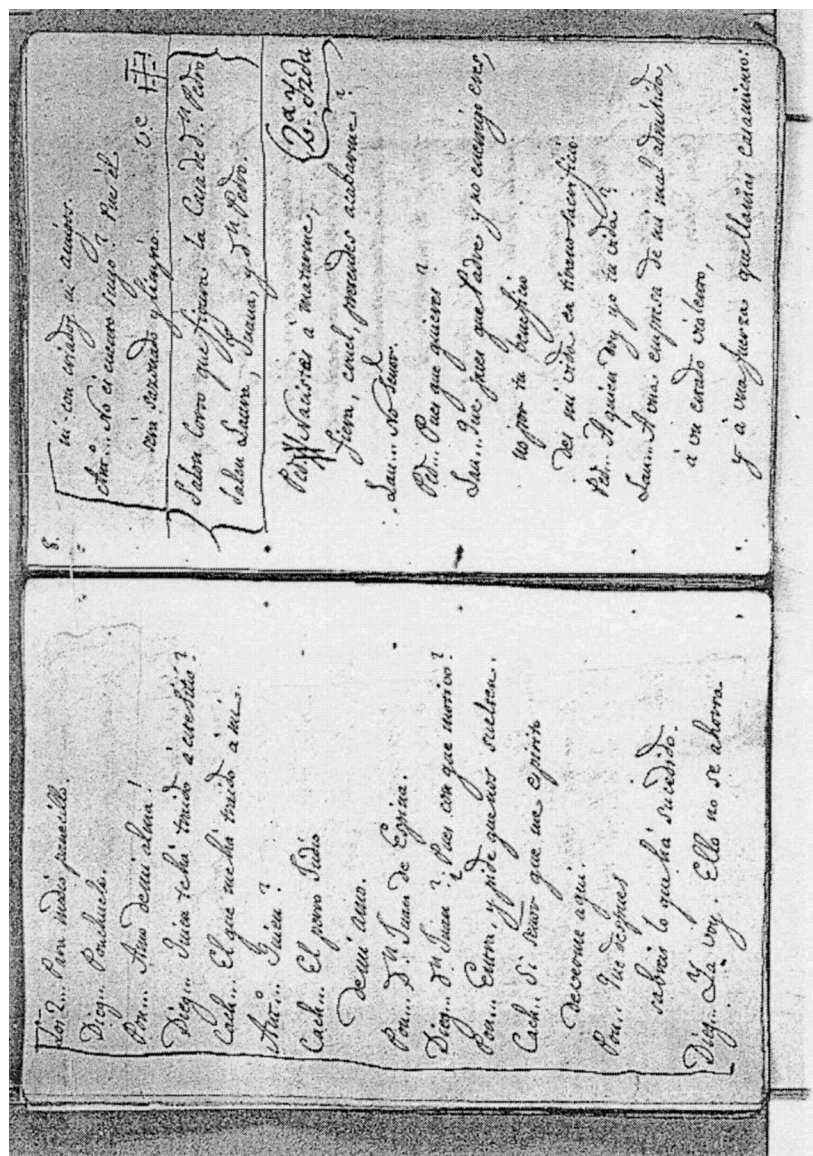 Los 2... Para medio panecillo.
Dieg... Ponchuelo.
Pon... Amo de mi alma!
Dieg... Quien te há traido á este sitio?
Cach... El que me há traido á mi.
Ant.º... Quien?
Cach... El perro Judio
de mi amo.
Pon... Dⁿ Juan de Espina.
Dieg... Dⁿ Juan? Pues con que motivo?
Pon... Entra, y pide que nos suelten.
Cach... Si señor que me espirito
de verme aqui.
Pon... Que despues
sabreis lo que há sucedido.
Dieg... Ya voy. Ello no se ahorra
8.
ni con criados ni amigos.
Ant.º... No es cuento suyo? Pues él
era sazonado y limpio. Vc
Salon Corto que figura la Casa de Dⁿ Pedro
Salen Laura, Juana, y Dⁿ Pedro.
2ª y
Ped... Naciste a matarme,
fiera, cruel, pretendes acabarme?
Lau... No Señor.
Ped... Pues que quieres?
Lau... Que pues que Padre, y no enemigo eres,
no por tu beneficio
des mi vida en tirano sacrificio.
Ped... A quien doy yo tu vida?
Lau... A una empresa de mi mal admitida,
á un estado violento,
y á una fuerza que llamas casamiento: